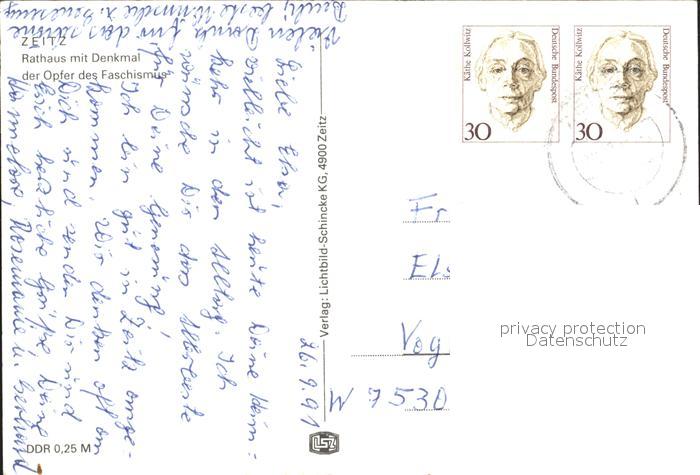 ZEITZ
Rathaus mit Denkmal
der Opfer des Faschismus
Vielen Dank für das schöne
Liebe Elsa,
vielleicht ist heute Deine Heim=
kehr in den Alltag. Ich
wünsche Dir das Allerbeste
für Deine Genesung!
Ich bin gut in Zeitz ange=
kommen. Wir denken oft an
Dich und senden Dir und
Erich herzliche Grüße Deine
Rosemarie u. Gerhard
26.9.91
Verlag: Lichtbild-Schincke KG, 4900 Zeitz
LSZ
DDR 0,25 M
Käthe Kollwitz
Deutsche Bundespost
30
Käthe Kollwitz
Deutsche Bundespost
30
Fr
Els
Vog
W 7530
privacy protection
Datenschutz